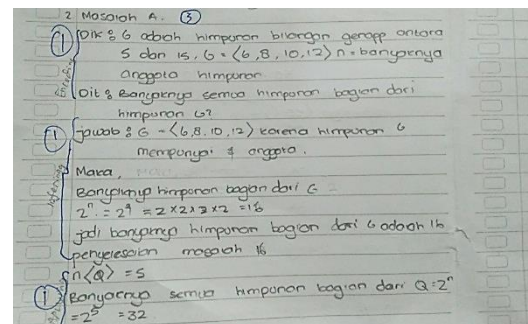 2 Masalah A. 3
1 Dik : G adalah himpunan bilangan genap antara
5 dan 15, G = <6, 8, 10, 12> n = banyaknya
anggota himpunan
Dit : Banyaknya semua himpunan bagian dari
himpunan G?
1 jawab : G = <6, 8, 10, 12> karena himpunan G
mempunyai 4 anggota.
Maka,
Banyaknya himpunan bagian dari G
2ⁿ = 2⁴ = 2 x 2 x 2 x 2 = 16
jadi banyaknya himpunan bagian dari G adalah 16
penyelesaian masalah B
n<Q> = 5
1 Banyaknya semua himpunan bagian dari Q = 2ⁿ
= 2⁵ = 32